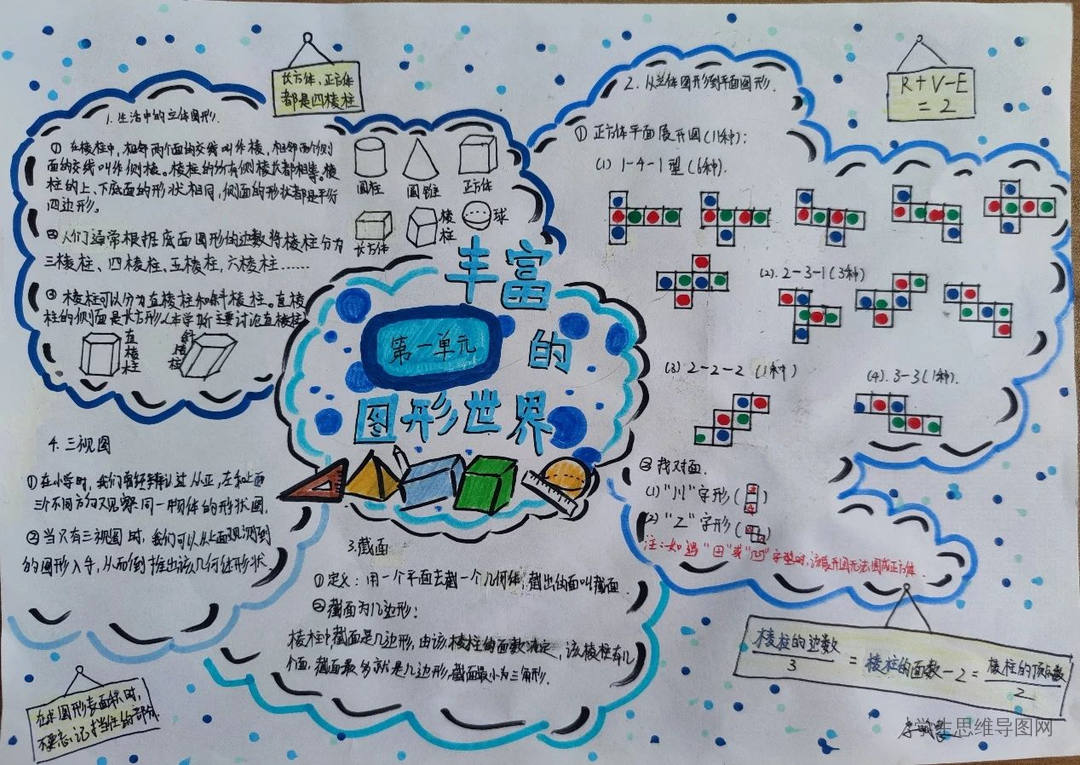 长方体、正方体
都是四棱柱
R+V-E
=2
1.生活中的立体图形.
① 在棱柱中,相邻两个面的交线叫作棱,相邻两个侧
面的交线叫作侧棱。棱柱的所有侧棱长都相等。棱
柱的上、下底面的形状相同,侧面的形状都是平行
四边形。
② 人们通常根据底面图形的边数将棱柱分为
三棱柱、四棱柱、五棱柱,六棱柱……
③ 棱柱可以分为直棱柱和斜棱柱。直棱
柱的侧面是长方形(本学期主要讨论直棱柱)
圆柱
圆锥
正方体
长方体
棱柱
球
直棱柱
斜棱柱
丰富
的
图形世界
第一单元
2.从立体图形到平面图形.
① 正方体平面展开图(11种):
(1) 1-4-1型(6种).
(2). 2-3-1(3种)
(3) 2-2-2 (1种)
(4). 3-3(1种).
② 找对面.
(1) "川"字形()
(2) "Z"字形()
注:如遇"田"或"凹"字型时,该展开图无法围成正方体.
3.截面
①定义:用一个平面去截一个几何体,截出的面叫截面.
②截面为几边形:
棱柱中,截面是几边形,由该棱柱的面数决定,该棱柱有几
个面,截面最多就是几边形,截面最小为三角形.
4.三视图
①在小学时,我们曾经辨认过从正,左和上面
三个不同方向观察同一物体的形状图.
②当只有三视图时,我们可以从上面观测到
的图形入手,从而倒推出该几何体形状.
在求图形表面积时,
不要忘记挡住的部分
棱柱的边数/3=棱柱的面数-2=棱柱的顶点数/2
学生思维导图网